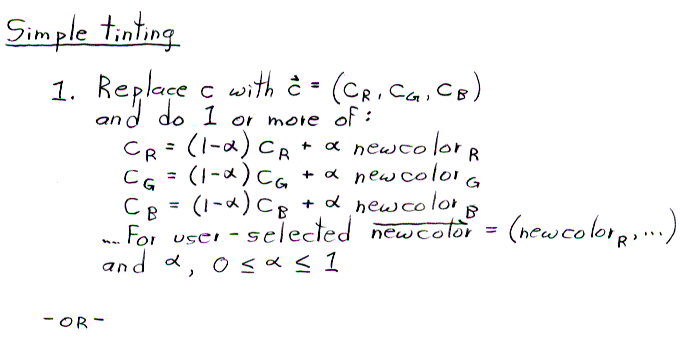 Simple tinting
1. Replace c with c⃗ = (C_R, C_G, C_B)
and do 1 or more of:
C_R = (1-α) C_R + α newcolor_R
C_G = (1-α) C_G + α newcolor_G
C_B = (1-α) C_B + α newcolor_B
... For user-selected newcolor⃗ = (newcolor_R, ...)
and α, 0 ≤ α ≤ 1
-OR-